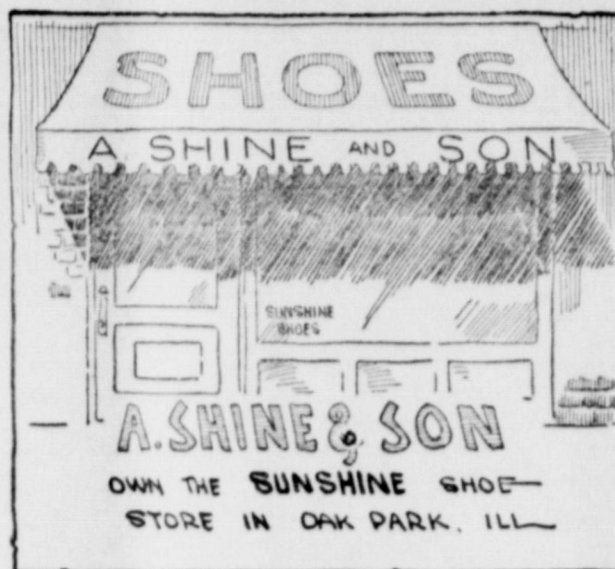 SHOES
A. SHINE AND SON
SUNSHINE
SHOES
A. SHINE & SON
OWN THE SUNSHINE SHOE
STORE IN OAK PARK. ILL